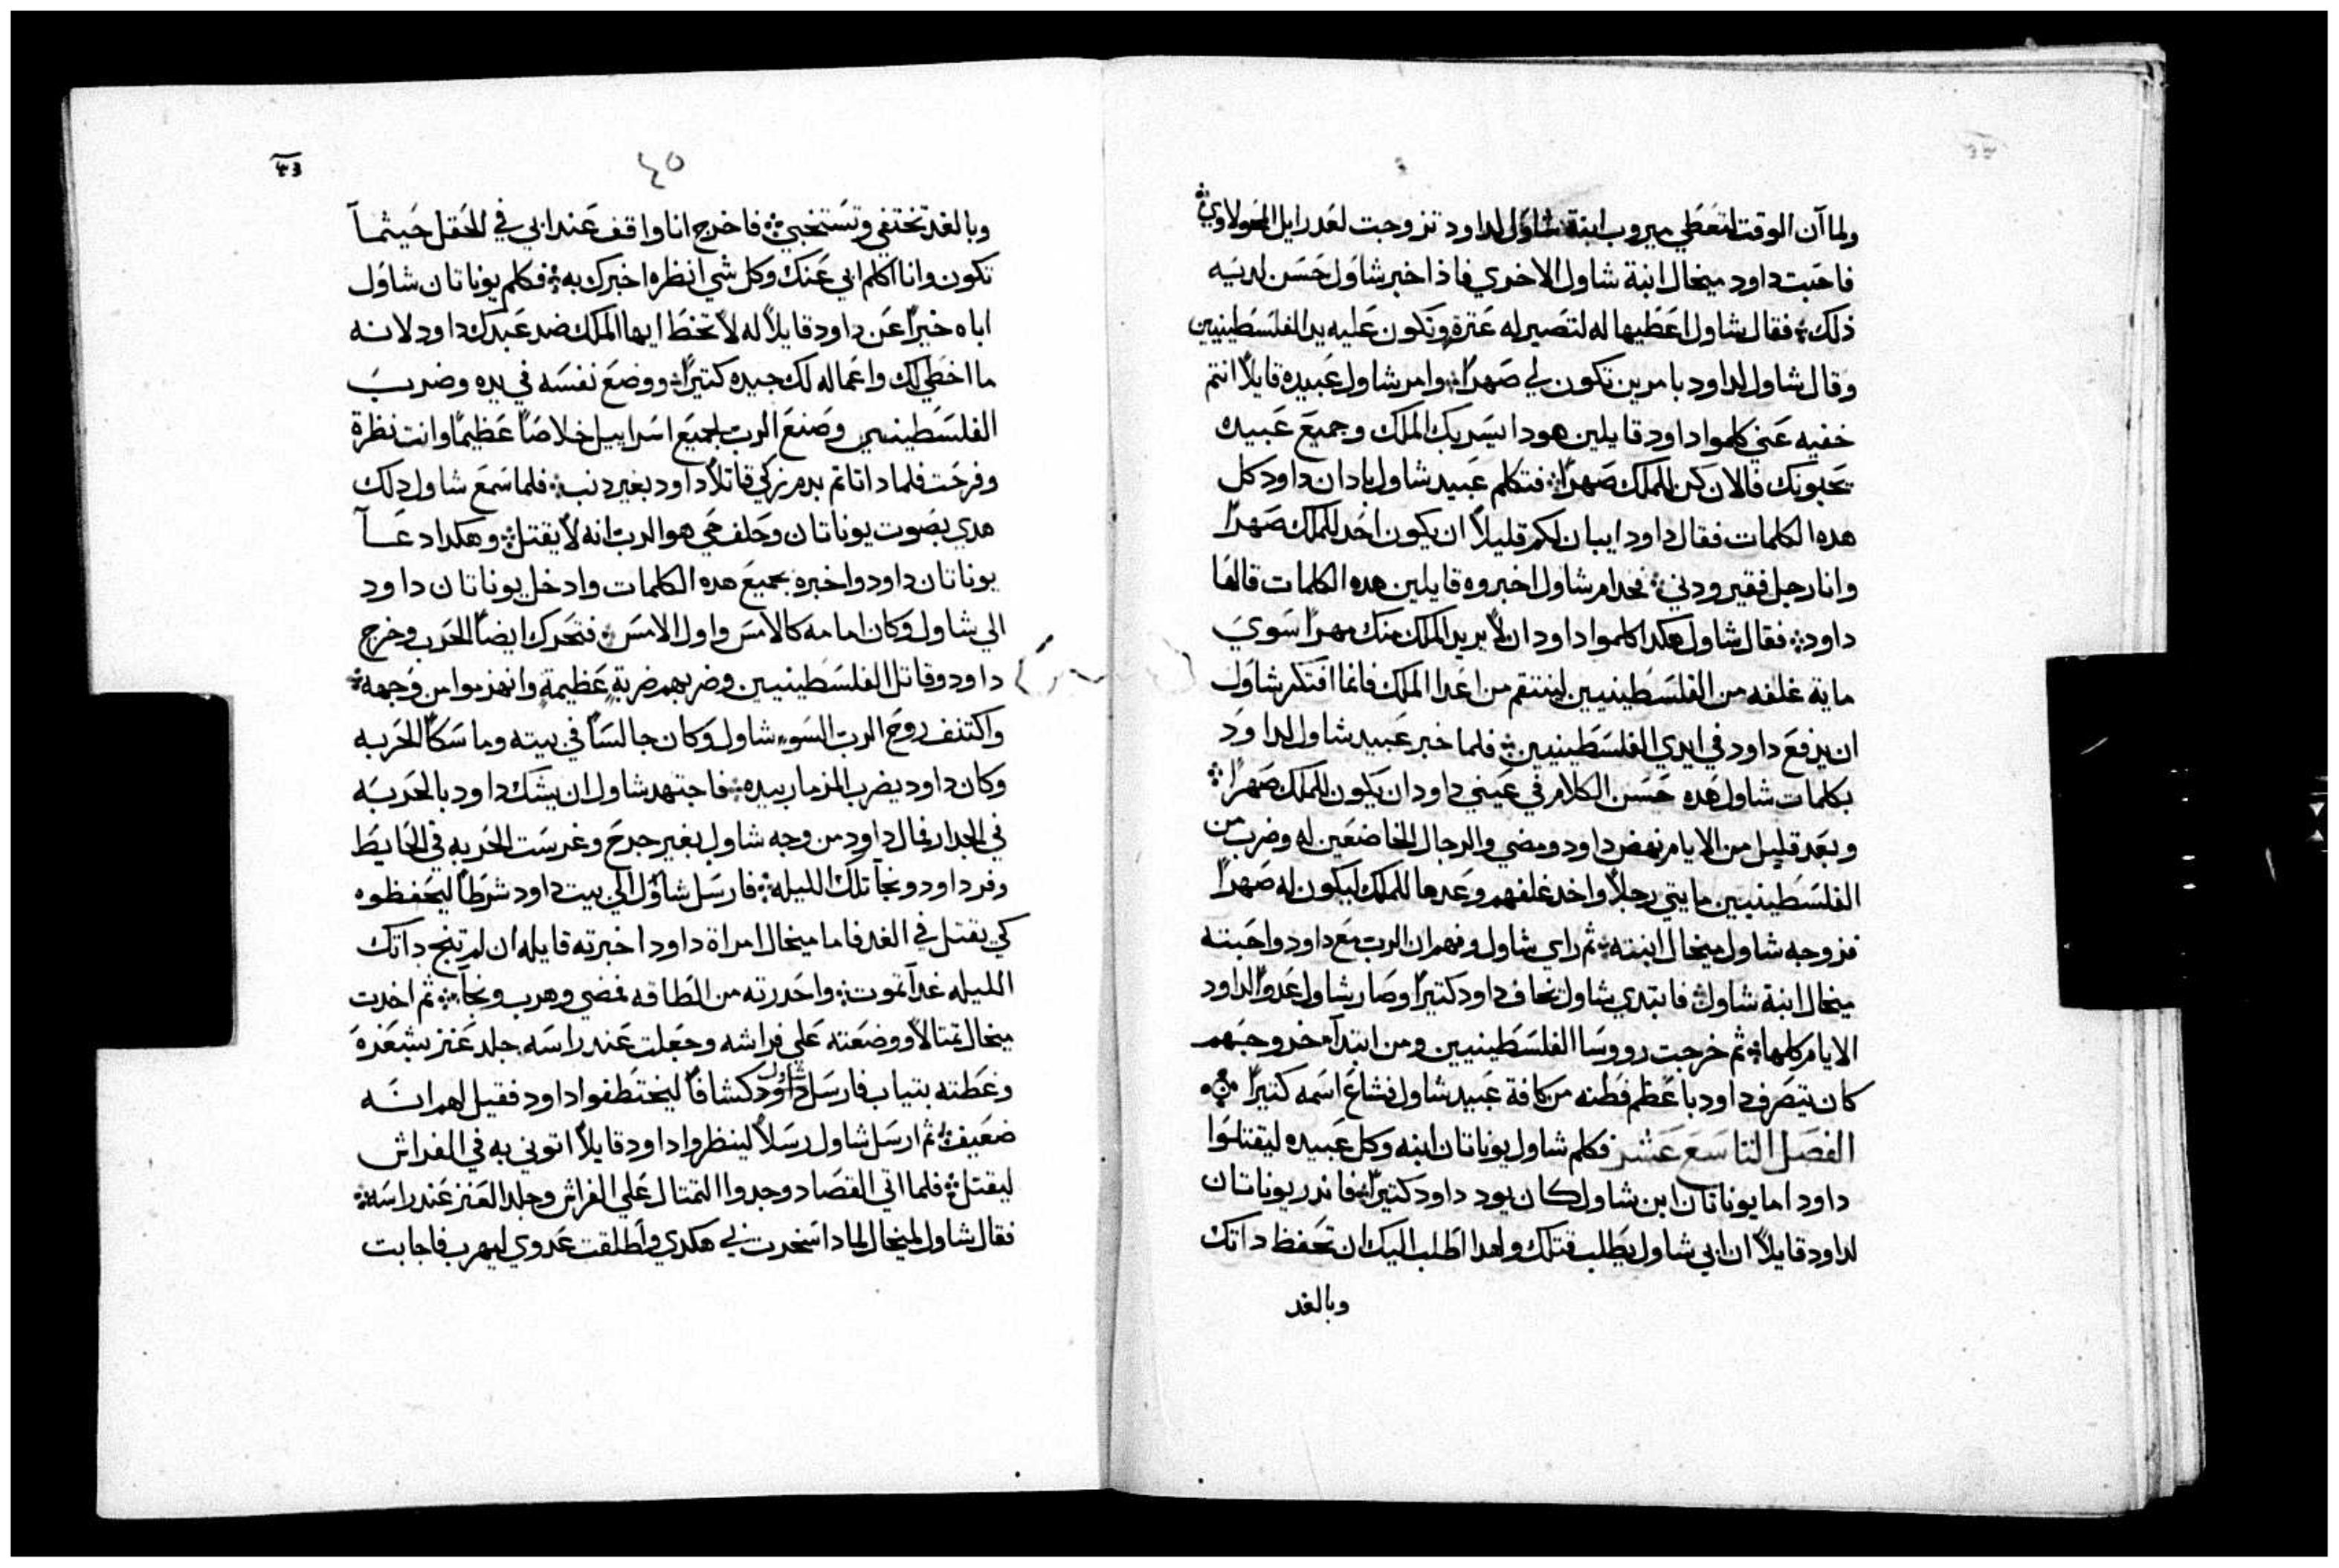 ولما آن الوقت لتعطي ميروب ابنة شاول لداود تزوجت لعدرايل المحولاوي
فاحبت داود ميخال ابنة شاول الاخري فاذا اخبر شاول حسن لديه
ذلك فقال شاول اعطيها له لتصير له عترة وتكون عليه يد الفلسطينيين
وقال شاول لداود بامرين تكون لي صهرًا وامر شاول عبيده قايلاً انتم
خفيه عني كلموا داود قايلين هودا يسر بك الملك وجميع عبيده
يحبونك فالان كن للملك صهرًا فتكلم عبيد شاول بادان داود كل
هده الكلمات فقال داود ايبان لكم قليلاً ان يكون احد للملك صهرًا
وانا رجل فقير ودني فخدام شاول اخبروه قايلين هده الكلمات قالها
داود فقال شاول هكدا كلموا داود ان لا يريد الملك منك مهرًا سوي
ماية غلفه من الفلسطينيين لينتقم من اعدا الملك فانما افتكر شاول
ان يدفع داود في ايدي الفلسطينيين فلما خبر عبيد شاول لداود
بكلمات شاول هده حسن الكلام في عيني داود ان يكون للملك صهرًا
وبعد قليل من الايام نهض داود ومضي والرجال الخاضعين له وضرب من
الفلسطينيين مايتي رجلاً واخد غلفهم وعدها للملك ليكون له صهرًا
فزوجه شاول ميخال ابنته ثم راي شاول وفهم ان الرب مع داود واحبته
ميخال ابنة شاول فابتدي شاول يخاف داود كتيرًا وصار شاول عدوًا لداود
الايام كلها ثم خرجت رووسا الفلسطينيين ومن ابتدآء خروجهم
كان يتصرف داود باعظم فطنه من كافة عبيد شاول فشاع اسمه كتيرًا
الفصل التاسع عشر فكلم شاول يوناتان ابنه وكل عبيده ليقتلوا
داود اما يوناتان ابن شاول كان يود داود كتيرًا فاندر يوناتان
لداود قايلاً ان ابي شاول يطلب قتلك ولهدا اطلب اليك ان تحفظ داتك
وبالغد
٤٥
وبالغد تختفي وتستخبي فاخرج انا واقف عند ابي في الحقل حيثمآ
تكون وانا اكلم ابي عنك وكل شي انظره اخبرك به فكلم يوناتان شاول
اباه خيرًا عن داود قايلاً له لا تخط ايها الملك ضد عبدك داود لانه
ما اخطي لك واعماله لك جيده كتيرًا ووضع نفسه في يده وضرب
الفلسطيني وصنع الرب لجميع اسراييل خلاصًا عظيمًا وانت نظرة
وفرحت فلمادا تاتم بدم زكي قاتلاً داود بغير دنب فلما سمع شاول دلك
هدي بصوت يوناتان وحلف حي هو الرب انه لا يقتل وهكدا دعآ
يوناتان داود واخبره بجميع هده الكلمات وادخل يوناتان داود
الي شاول وكان امامه كالامس واول الامس فتحرك ايضًا الحرب وخرج
داود وقاتل الفلسطينيين وضربهم ضربةٍ عظيمةٍ وانهزموا من وجهه
واكتنف روح الرب السوء شاول وكان جالسًا في بيته وماسكًا الحربه
وكان داود يضرب المزمار بيده فاجتهد شاول ان يشك داود بالحربه
في الجدار فمال داود من وجه شاول بغير جرح وغرست الحربه في الحايط
وفر داود ونجآ تلك الليله فارسل شاؤل الي بيت داود شرطًا ليحفظوه
كي يقتل في الغد فاما ميخال امراة داود اخبرته قايله ان لم تنج داتك
الليله غدآ تموت واحدرته من الطاقه فمضي وهرب ونجآ ثم اخدت
ميخال تمتالاً ووضعته علي فراشه وجعلت عند راسه جلد عنز بشعرة
وغطته بتياب فارسل شاول داود كشافًا ليختطفوا داود فقيل لهم انه
ضعيف ثم ارسل شاول رسلاً لينظروا داود قايلاً اتوني به في الفراش
ليقتل فلما اتي القصاد وجدوا التمتال علي الفراش وجلد العنز عند راسه
فقال شاول لميخال لمادا سخرت بي هكدي واطلقت عدوي ليهرب فاجابت